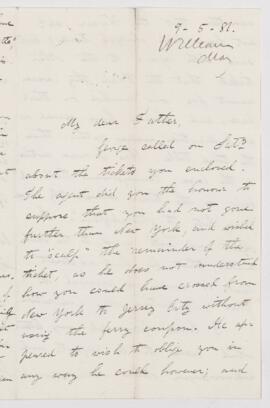 9-5-81.
William
Mar
My dear Father,
George called on Sat?
about the tickets you enclosed.
The agent did you the honour to
suppose that you had not gone
further than New York, and wished
to "scalp" the remainder of the
ticket, as he does not understand
how you could have crossed from
New York to Jersey City without
using the ferry coupon. He ap-
peared to wish to oblige you in
any way he could however; and